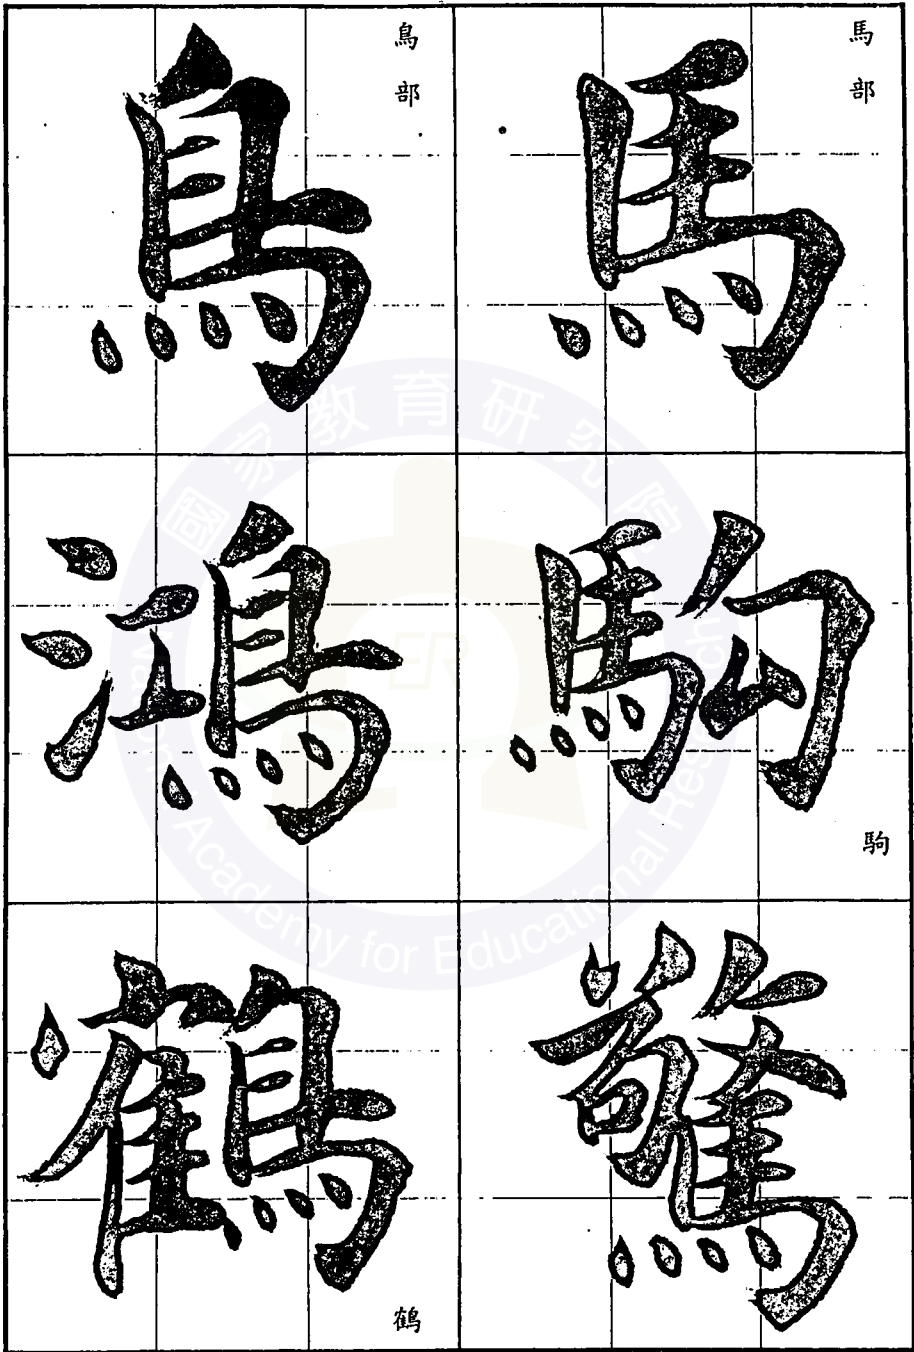 馬部
馬
駒
駒
驚
鳥部
鳥
鴻
鶴
鶴
國家教育研究院
National Academy for Educational Research